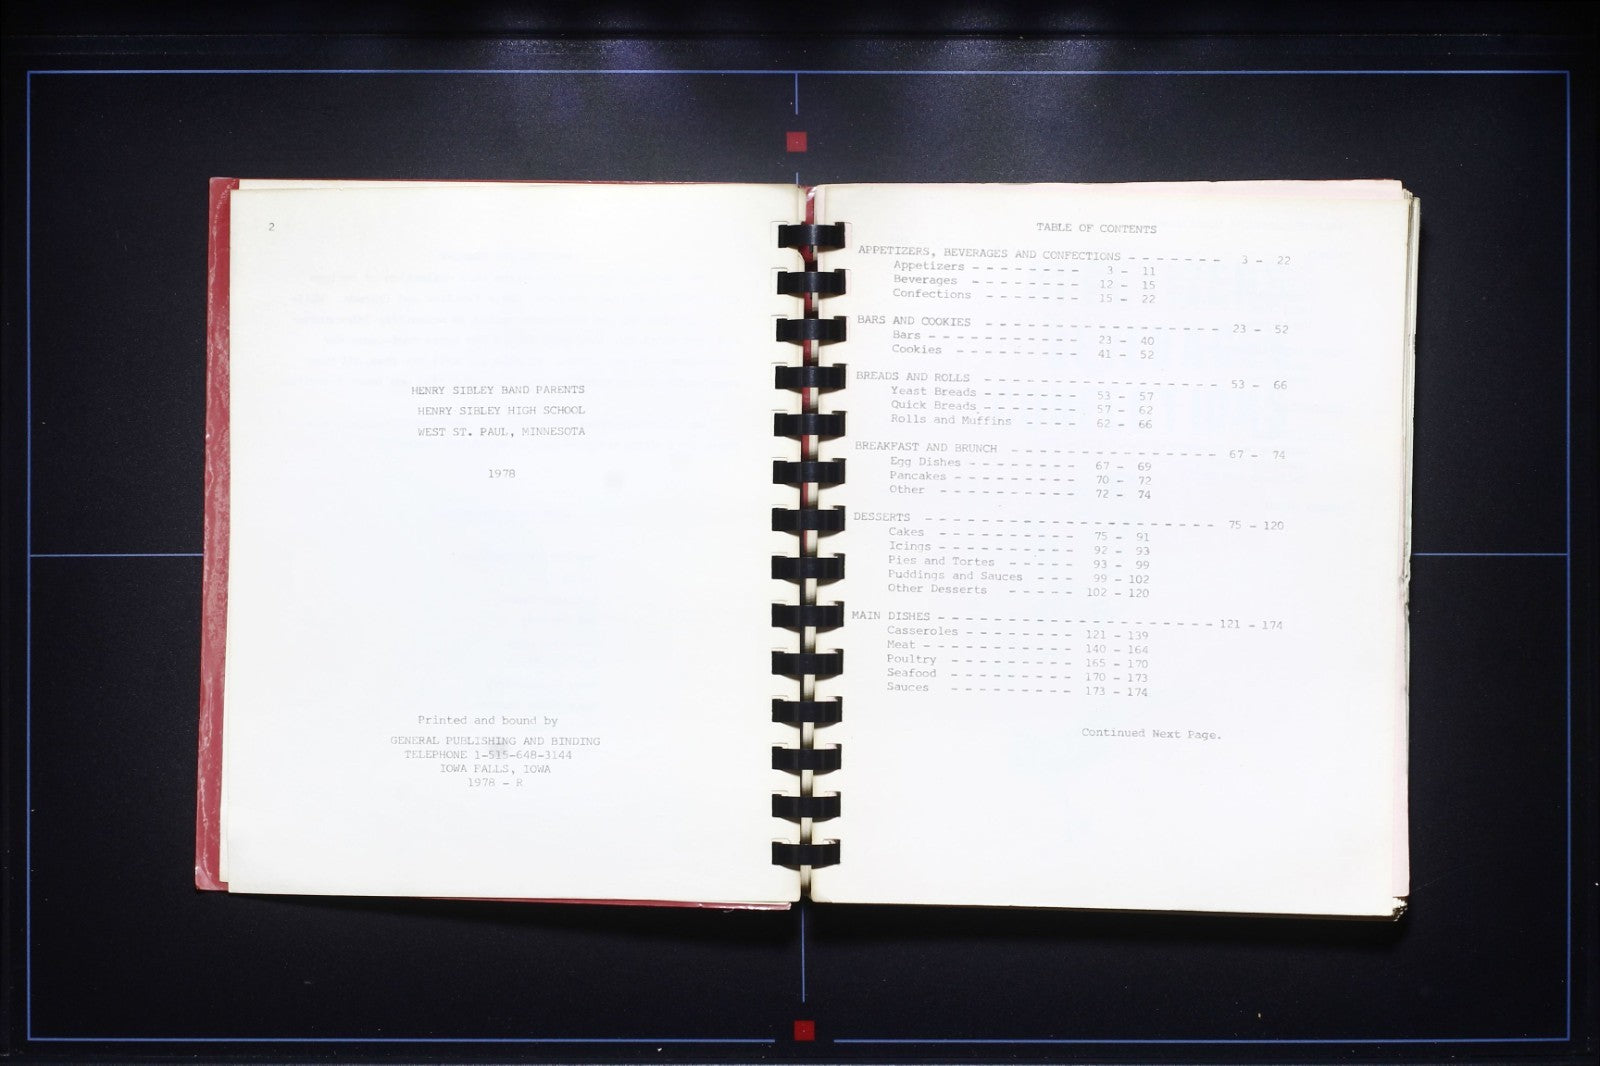 2
HENRY SIBLEY BAND PARENTS
HENRY SIBLEY HIGH SCHOOL
WEST ST. PAUL, MINNESOTA
1978
Printed and bound by
GENERAL PUBLISHING AND BINDING
TELEPHONE 1-515-648-3144
IOWA FALLS, IOWA
1978 - R
TABLE OF CONTENTS
APPETIZERS, BEVERAGES AND CONFECTIONS - - - - - - - 3 - 22
Appetizers - - - - - - - - 3 - 11
Beverages - - - - - - - - 12 - 15
Confections - - - - - - - 15 - 22
BARS AND COOKIES - - - - - - - - - - - - - - - - - 23 - 52
Bars - - - - - - - - - - - 23 - 40
Cookies - - - - - - - - - 41 - 52
BREADS AND ROLLS - - - - - - - - - - - - - - - - - 53 - 66
Yeast Breads - - - - - - - 53 - 57
Quick Breads - - - - - - - 57 - 62
Rolls and Muffins - - - - 62 - 66
BREAKFAST AND BRUNCH - - - - - - - - - - - - - - - 67 - 74
Egg Dishes - - - - - - - - 67 - 69
Pancakes - - - - - - - - - 70 - 72
Other - - - - - - - - - - 72 - 74
DESSERTS - - - - - - - - - - - - - - - - - - - - - 75 - 120
Cakes - - - - - - - - - - 75 - 91
Icings - - - - - - - - - - 92 - 93
Pies and Tortes - - - - - 93 - 99
Puddings and Sauces - - - 99 - 102
Other Desserts - - - - - 102 - 120
MAIN DISHES - - - - - - - - - - - - - - - - - - - - 121 - 174
Casseroles - - - - - - - - 121 - 139
Meat - - - - - - - - - - - 140 - 164
Poultry - - - - - - - - - 165 - 170
Seafood - - - - - - - - - 170 - 173
Sauces - - - - - - - - - 173 - 174
Continued Next Page.